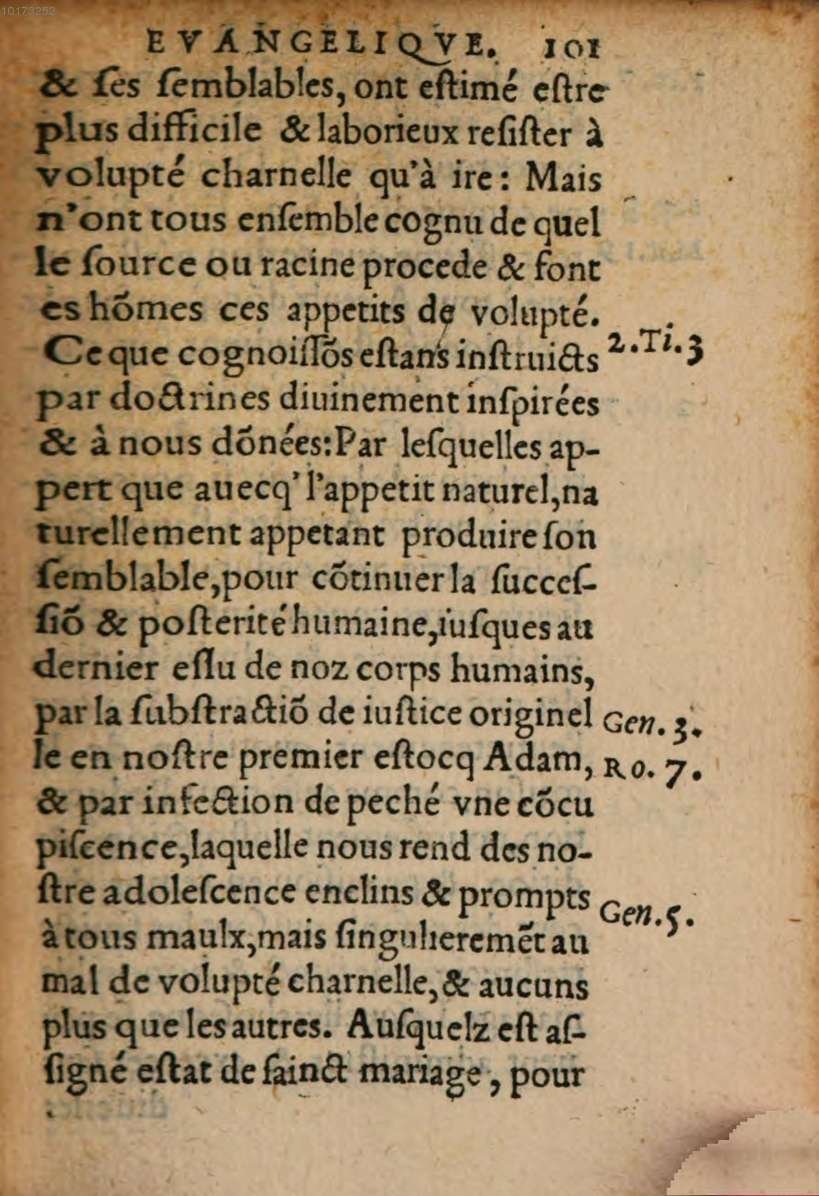 10173253
EVANGELIQVE. 101
& ſes ſemblables, ont eſtimé eſtre
plus difficile & laborieux reſiſter à
volupté charnelle qu'à ire: Mais
n'ont tous enſemble cognu de quel
le ſource ou racine procede & ſont
es hõmes ces appetits de volupté.
Ce que cognoiſſõs eſtans inſtruicts 2.Ti.3
par doctrines diuinement inſpirées
& à nous dõnées: Par leſquelles ap-
pert que auecq' l'appetit naturel, na
turellement appetant produire ſon
ſemblable, pour cõtinuer la ſucceſ-
ſiõ & poſterité humaine, iuſques au
dernier eſlu de noz corps humains,
par la ſubſtractiõ de iuſtice originel Gen. 3.
le en noſtre premier eſtocq Adam, Ro. 7.
& par infection de peché vne cõcu
piſcence, laquelle nous rend des no-
ſtre adoleſcence enclins & prompts Gen. 5.
à tous maulx, mais ſingulieremẽt au
mal de volupté charnelle, & aucuns
plus que les autres. Auſquelz eſt aſ-
ſigné eſtat de ſainct mariage, pour